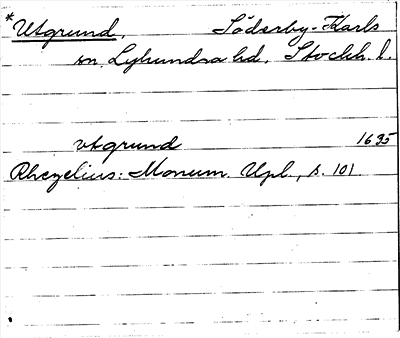 *Utgrund, Söderby-Karls
sn, Lyhundra hd, Stockh. l.
vtgrund 1635
Rhezelius: Monum. Upl., s. 101